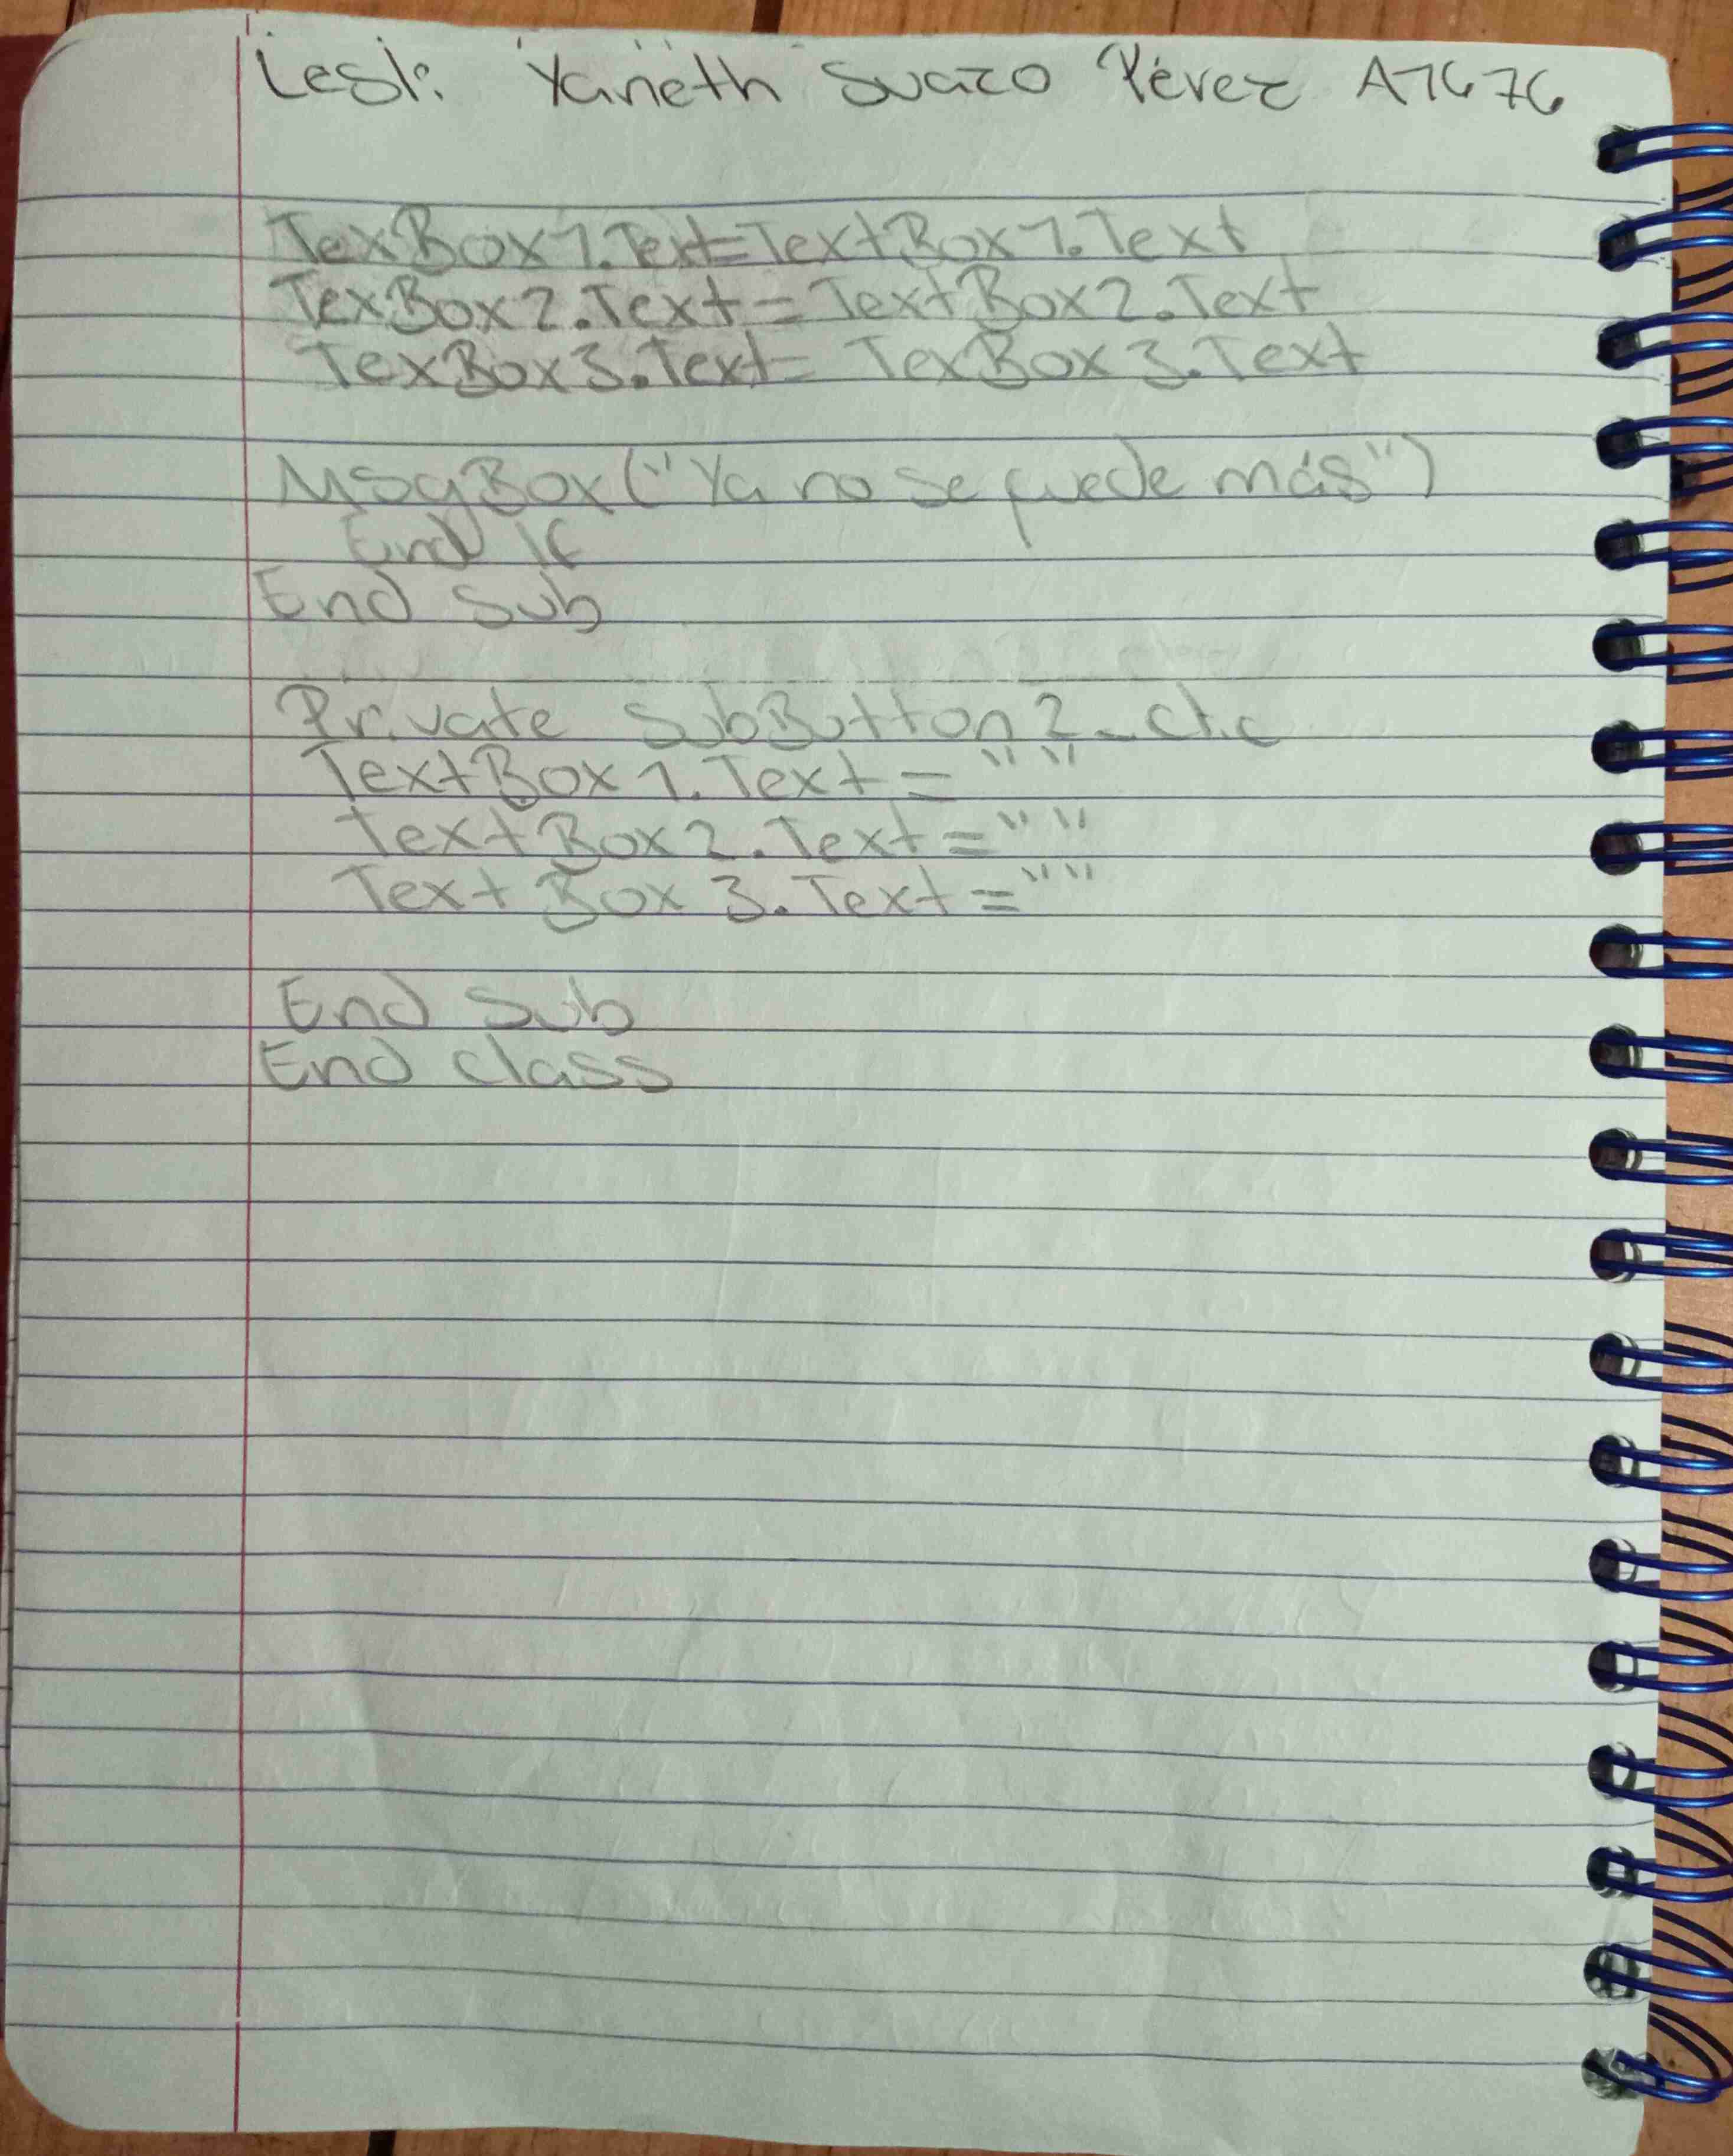 Lesli Yaneth Suazo Pérez A7676
TexBox1.Text=TextBox1.Text
TexBox2.Text=TextBox2.Text
TexBox3.Text= TexBox3.Text
MsgBox("Ya no se puede más")
End If
End Sub
Private SubButton2_Clic
TextBox1.Text=""
TextBox2.Text=""
TextBox3.Text=""
End Sub
End class